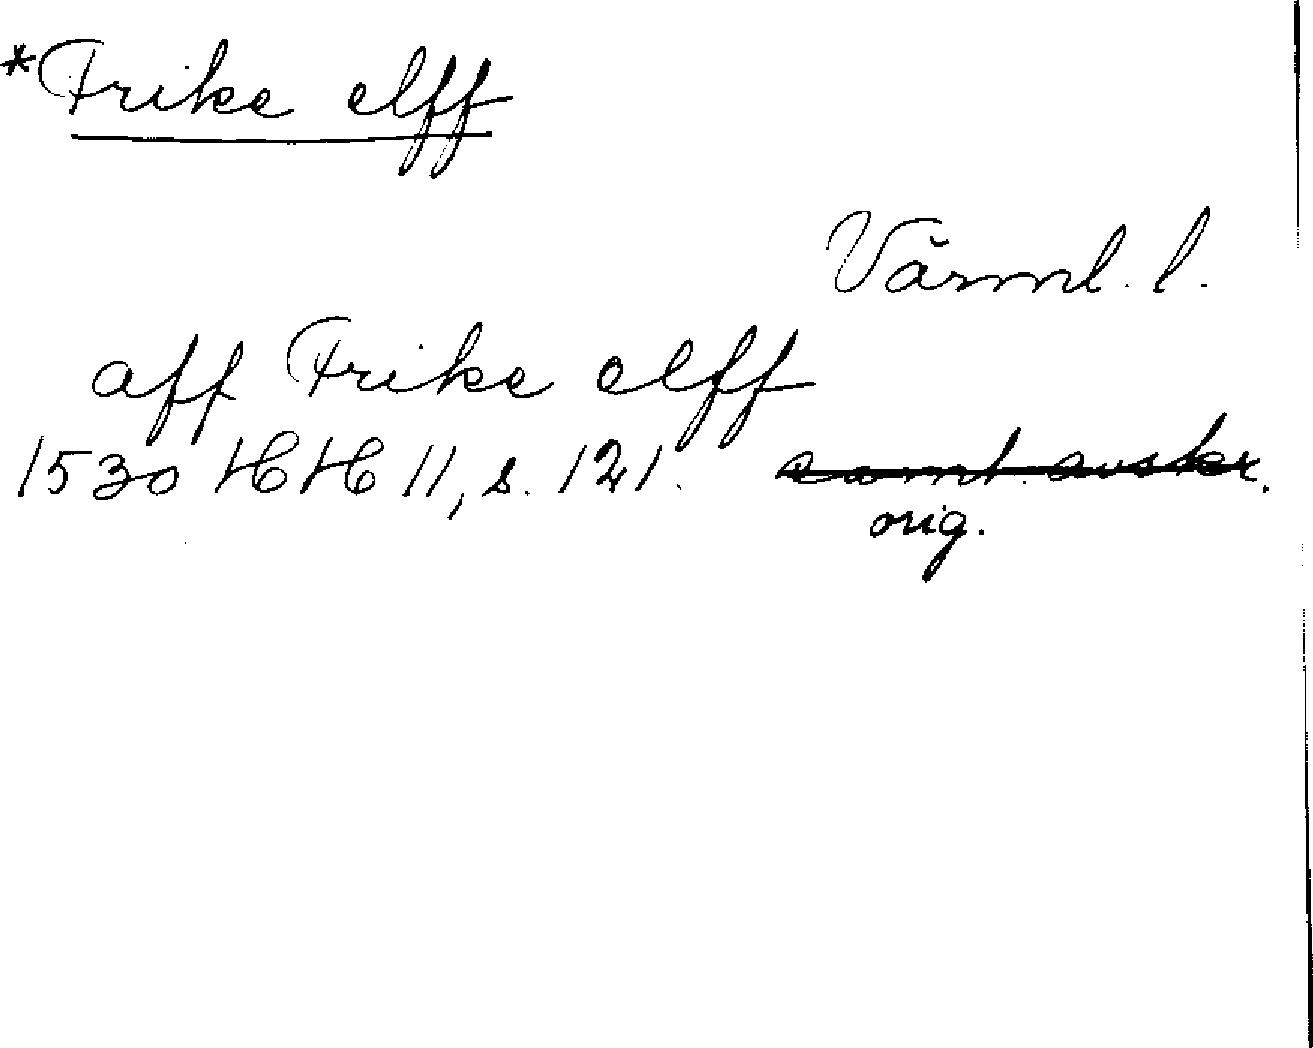 *Frike elff
Värml. l.
aff Frike elff
1530 HH 11, s. 121. samt. avskr.
orig.